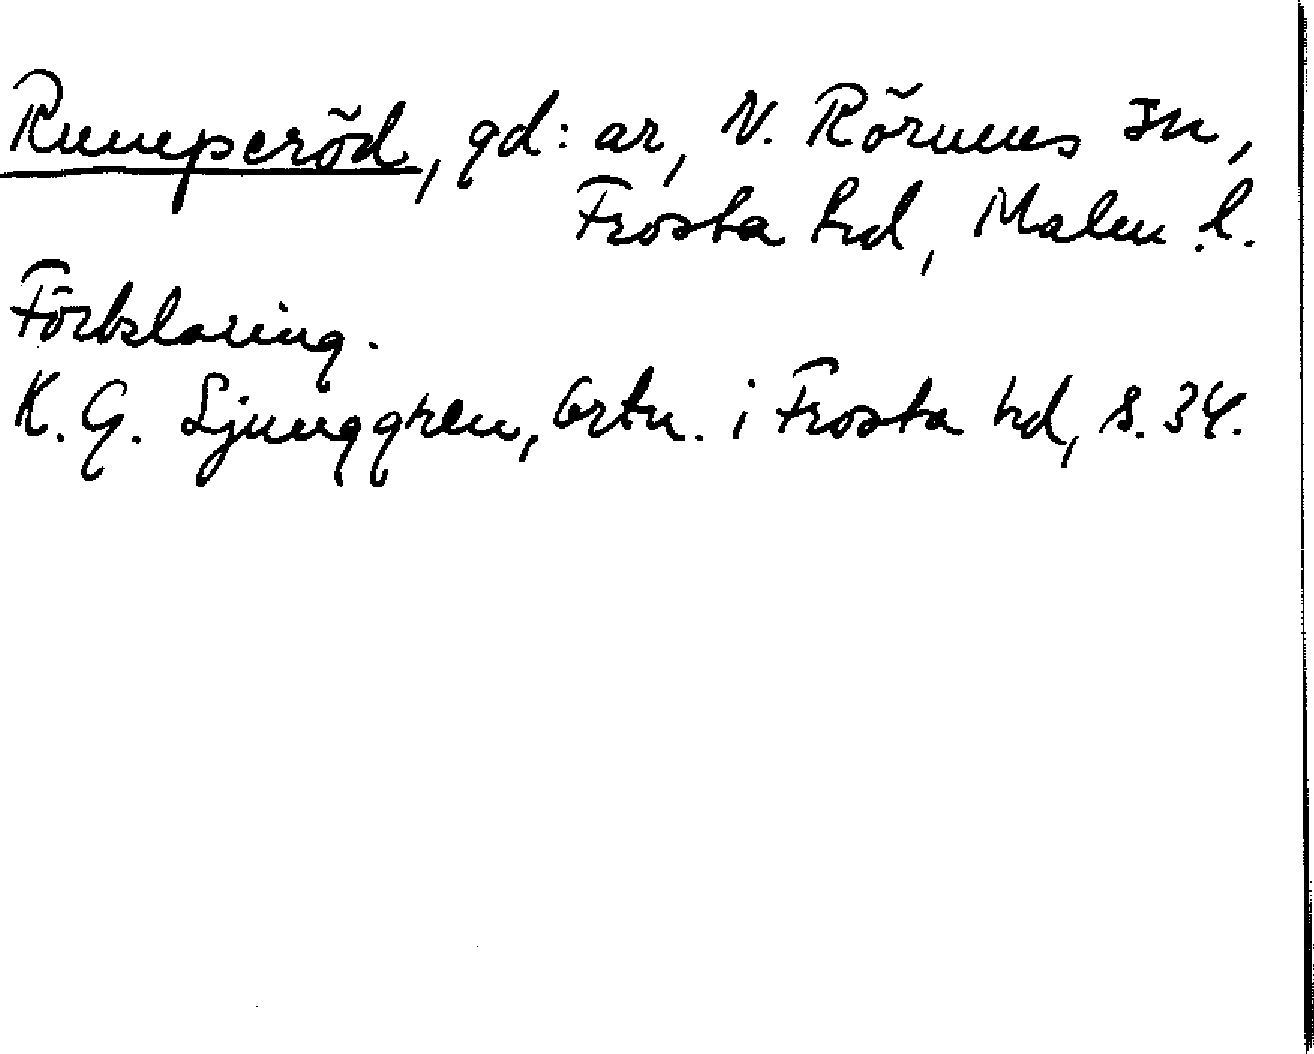 Rumperöd, gd:ar, N. Rörums sn,
Frosta hd, Malm. l.
Förklaring.
K. G. Ljunggren, Ortn. i Frosta hd, s. 34.